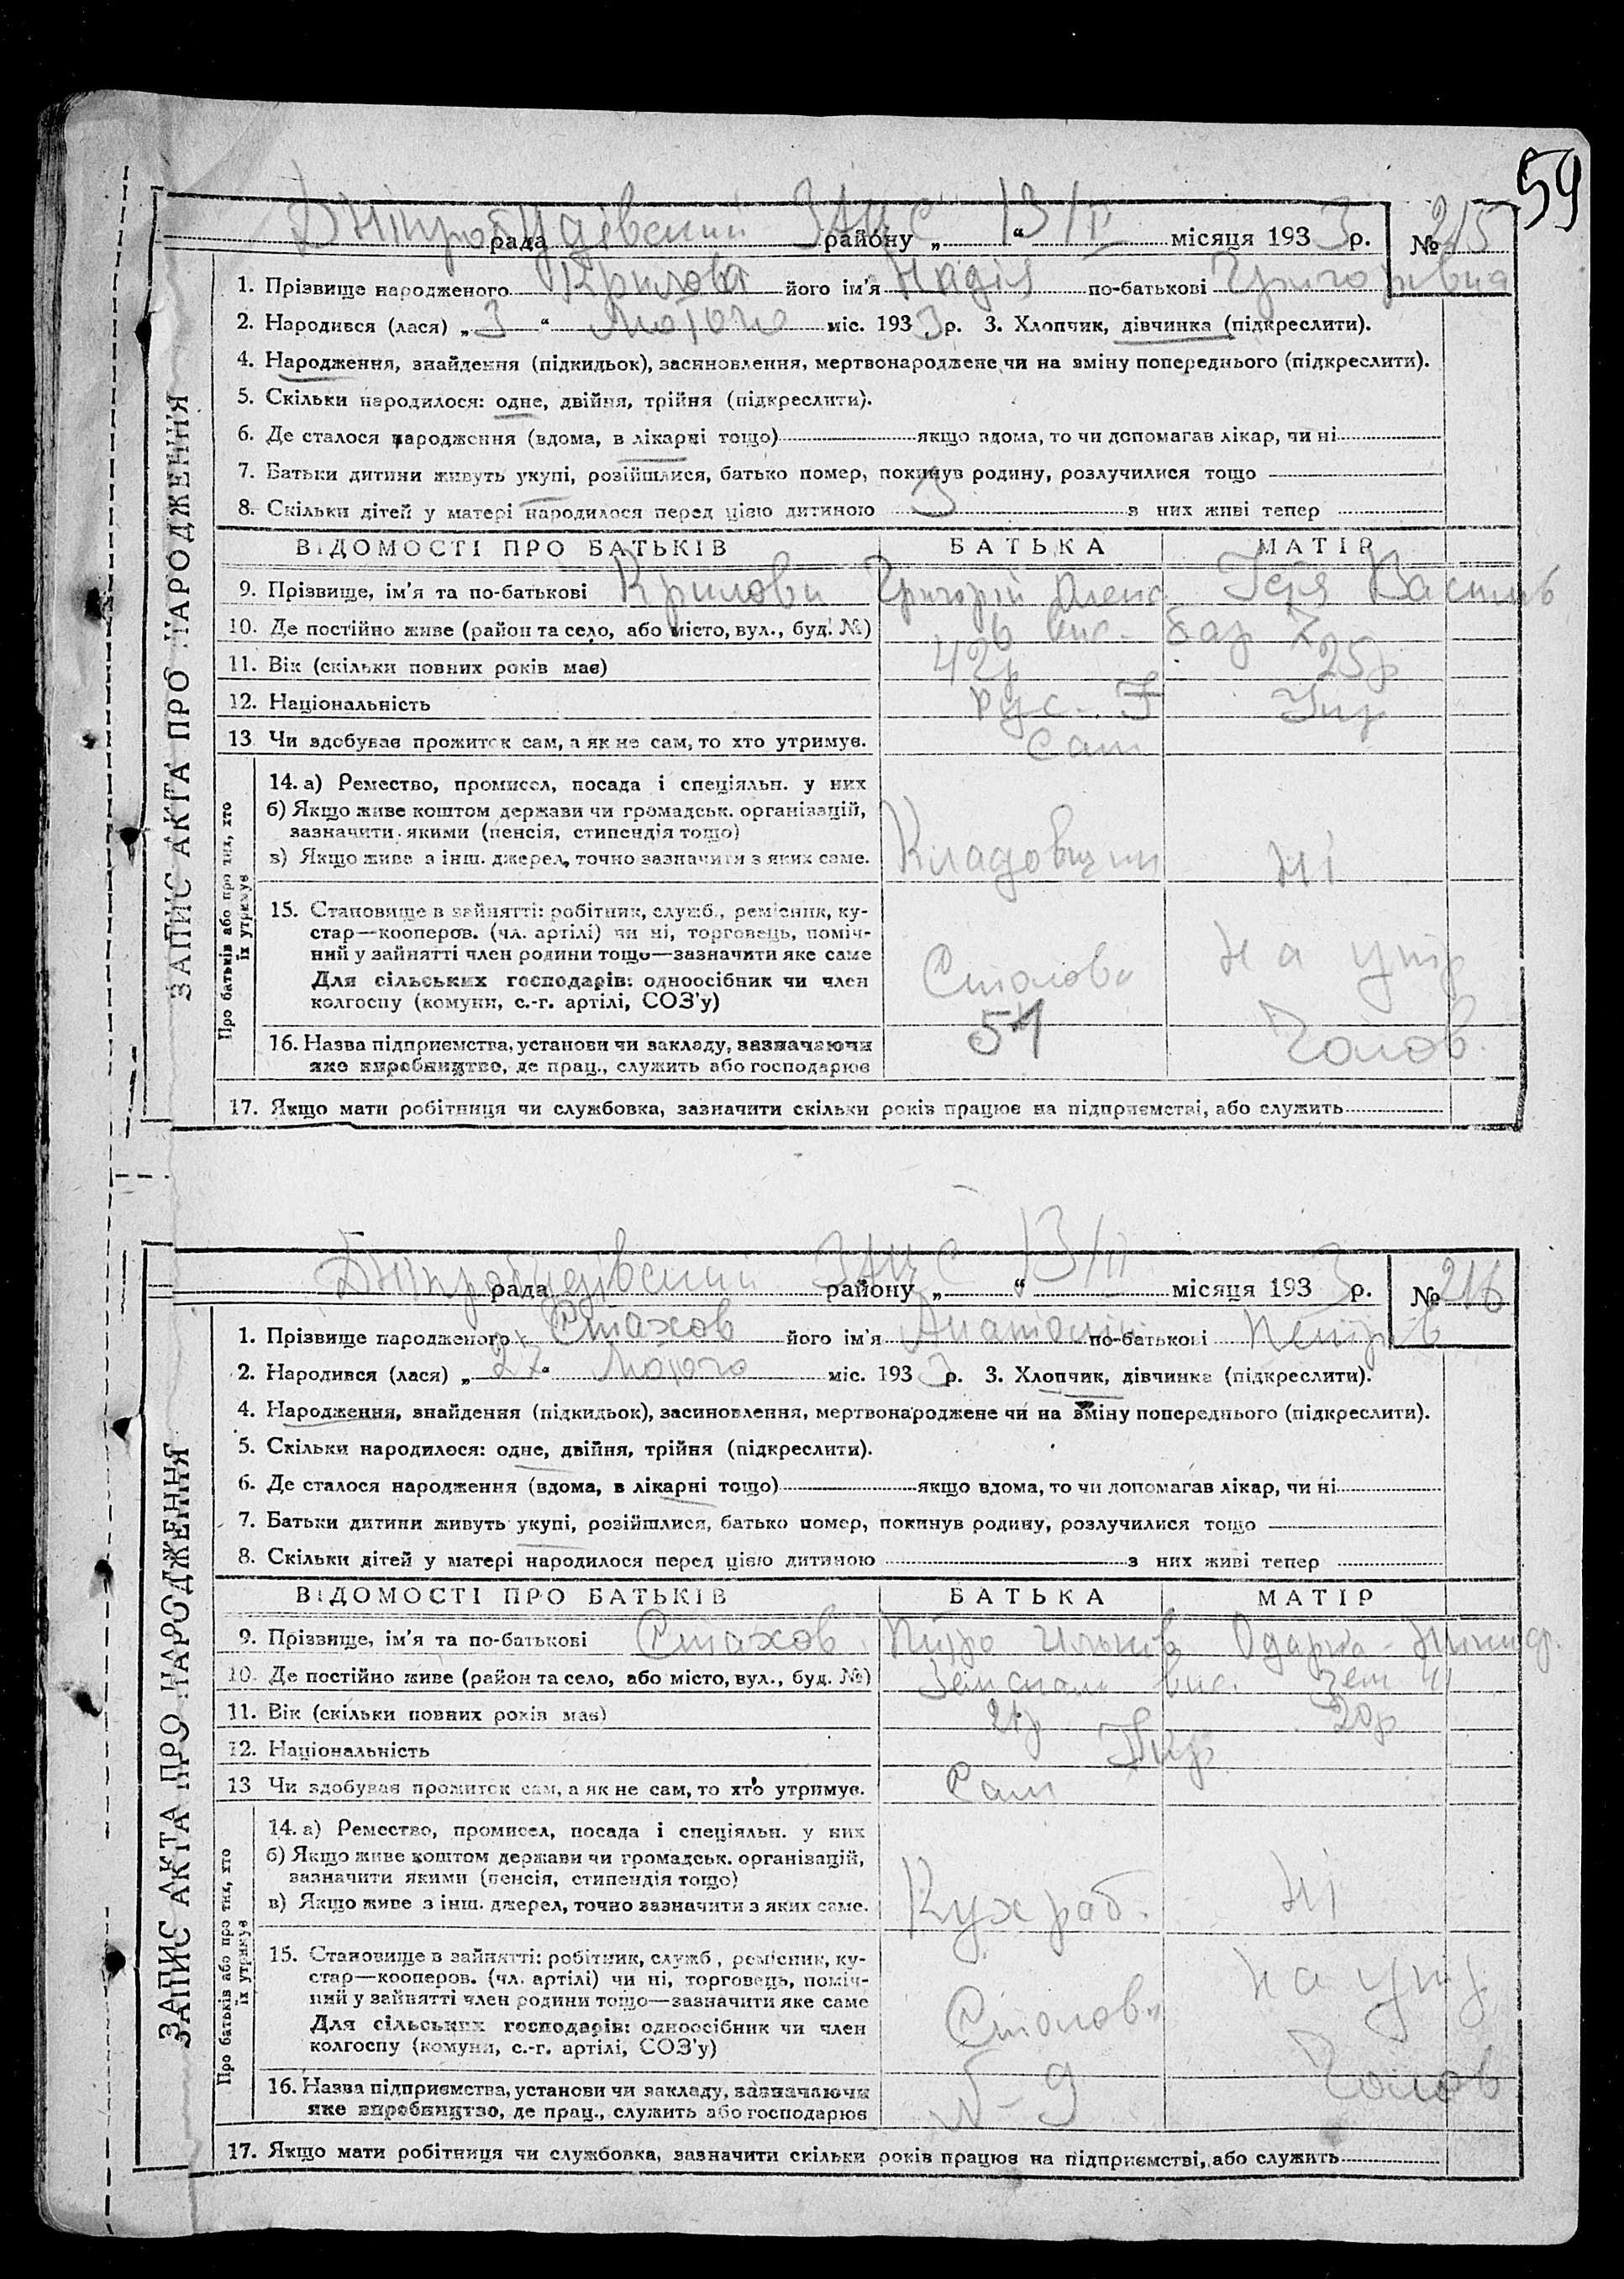 59
Дніпробудівський ЗАЦС 13/IV
рада району „ “ місяця 1933р. № 215
1. Прізвище народженого Крилова його ім'я Надія по-батькові Григорівна
2. Народився (лася) „3“ лютого міс. 1933р. 3. Хлопчик, дівчинка (підкреслити).
4. Народження, знайдення (підкидьок), засиновлення, мертвонароджене чи на зміну попереднього (підкреслити).
5. Скільки народилося: одне, двійня, трійня (підкреслити).
6. Де сталося народження (вдома, в лікарні тощо) якщо вдома, то чи допомагав лікар, чи ні
7. Батьки дитини живуть укупі, розійшлися, батько помер, покинув родину, розлучилися тощо
8. Скільки дітей у матері народилося перед цією дитиною 3 з них живі тепер
ВІДОМОСТІ ПРО БАТЬКІВ БАТЬКА МАТІР
9. Прізвище, ім'я та по-батькові Крилови Григорій Олекс.
10. Де постійно живе (район та село, або місто, вул., буд. №) 6 вис. бар 7
11. Вік (скільки повних років має) 42р 25р
12. Національність рус. Укр
13. Чи здобуває прожиток сам, а як не сам, то хто утримує. Сам
14. а) Ремество, промисел, посада і спеціяльн. у них
б) Якщо живе коштом держави чи громадськ. організацій,
зазначити якими (пенсія, стипендія тощо)
в) Якщо живе з інш. джерел, точно зазначити з яких саме. Кладовщик ні
15. Становище в зайнятті: робітник, служб., ремісник, ку-
стар—кооперов. (чл. артілі) чи ні, торговець, поміч-
ний у зайнятті член родини тощо—зазначити яке саме на утр
Для сільських господарів: одноосібник чи член Столова
колгоспу (комуни, с.-г. артілі, СОЗ'у)
16. Назва підприємства, установи чи закладу, зазначаючи 51 Чолов.
яке виробництво, де прац., служить або господарює
17. Якщо мати робітниця чи службовка, зазначити скільки років працює на підприємстві, або служить
ЗАПИС АКТА ПРО НАРОДЖЕННЯ
Про батьків або про тих, хто
їх утримує
Дніпробудівський ЗАЦС 13/II
рада району „ “ місяця 1933р. № 216
1. Прізвище народженого Стахов його ім'я Анатолій по-батькові Петров
2. Народився (лася) „27“ лютого міс. 1933р. 3. Хлопчик, дівчинка (підкреслити).
4. Народження, знайдення (підкидьок), засиновлення, мертвонароджене чи на зміну попереднього (підкреслити).
5. Скільки народилося: одне, двійня, трійня (підкреслити).
6. Де сталося народження (вдома, в лікарні тощо) якщо вдома, то чи допомагав лікар, чи ні
7. Батьки дитини живуть укупі, розійшлися, батько помер, покинув родину, розлучилися тощо
8. Скільки дітей у матері народилося перед цією дитиною з них живі тепер
ВІДОМОСТІ ПРО БАТЬКІВ БАТЬКА МАТІР
9. Прізвище, ім'я та по-батькові Стахов Петро Ильков Одарка
10. Де постійно живе (район та село, або місто, вул., буд. №) вис.
11. Вік (скільки повних років має) 21р 20р
12. Національність Укр
13 Чи здобуває прожиток сам, а як не сам, то хто утримує. Сам
14. а) Ремество, промисел, посада і спеціяльн. у них
б) Якщо живе коштом держави чи громадськ. організацій,
зазначити якими (пенсія, стипендія тощо)
в) Якщо живе з інш. джерел, точно зазначити з яких саме. Кух раб. ні
15. Становище в зайнятті: робітник, служб., ремісник, ку-
стар—кооперов. (чл. артілі) чи ні, торговець, поміч-
ний у зайнятті член родини тощо—зазначити яке саме на утр
Для сільських господарів: одноосібник чи член Столова
колгоспу (комуни, с.-г. артілі, СОЗ'у)
16. Назва підприємства, установи чи закладу, зазначаючи № 9 Чолов
яке виробництво, де прац., служить або господарює
17. Якщо мати робітниця чи службовка, зазначити скільки років працює на підприємстві, або служить
ЗАПИС АКТА ПРО НАРОДЖЕННЯ
Про батьків або про тих, хто
їх утримує